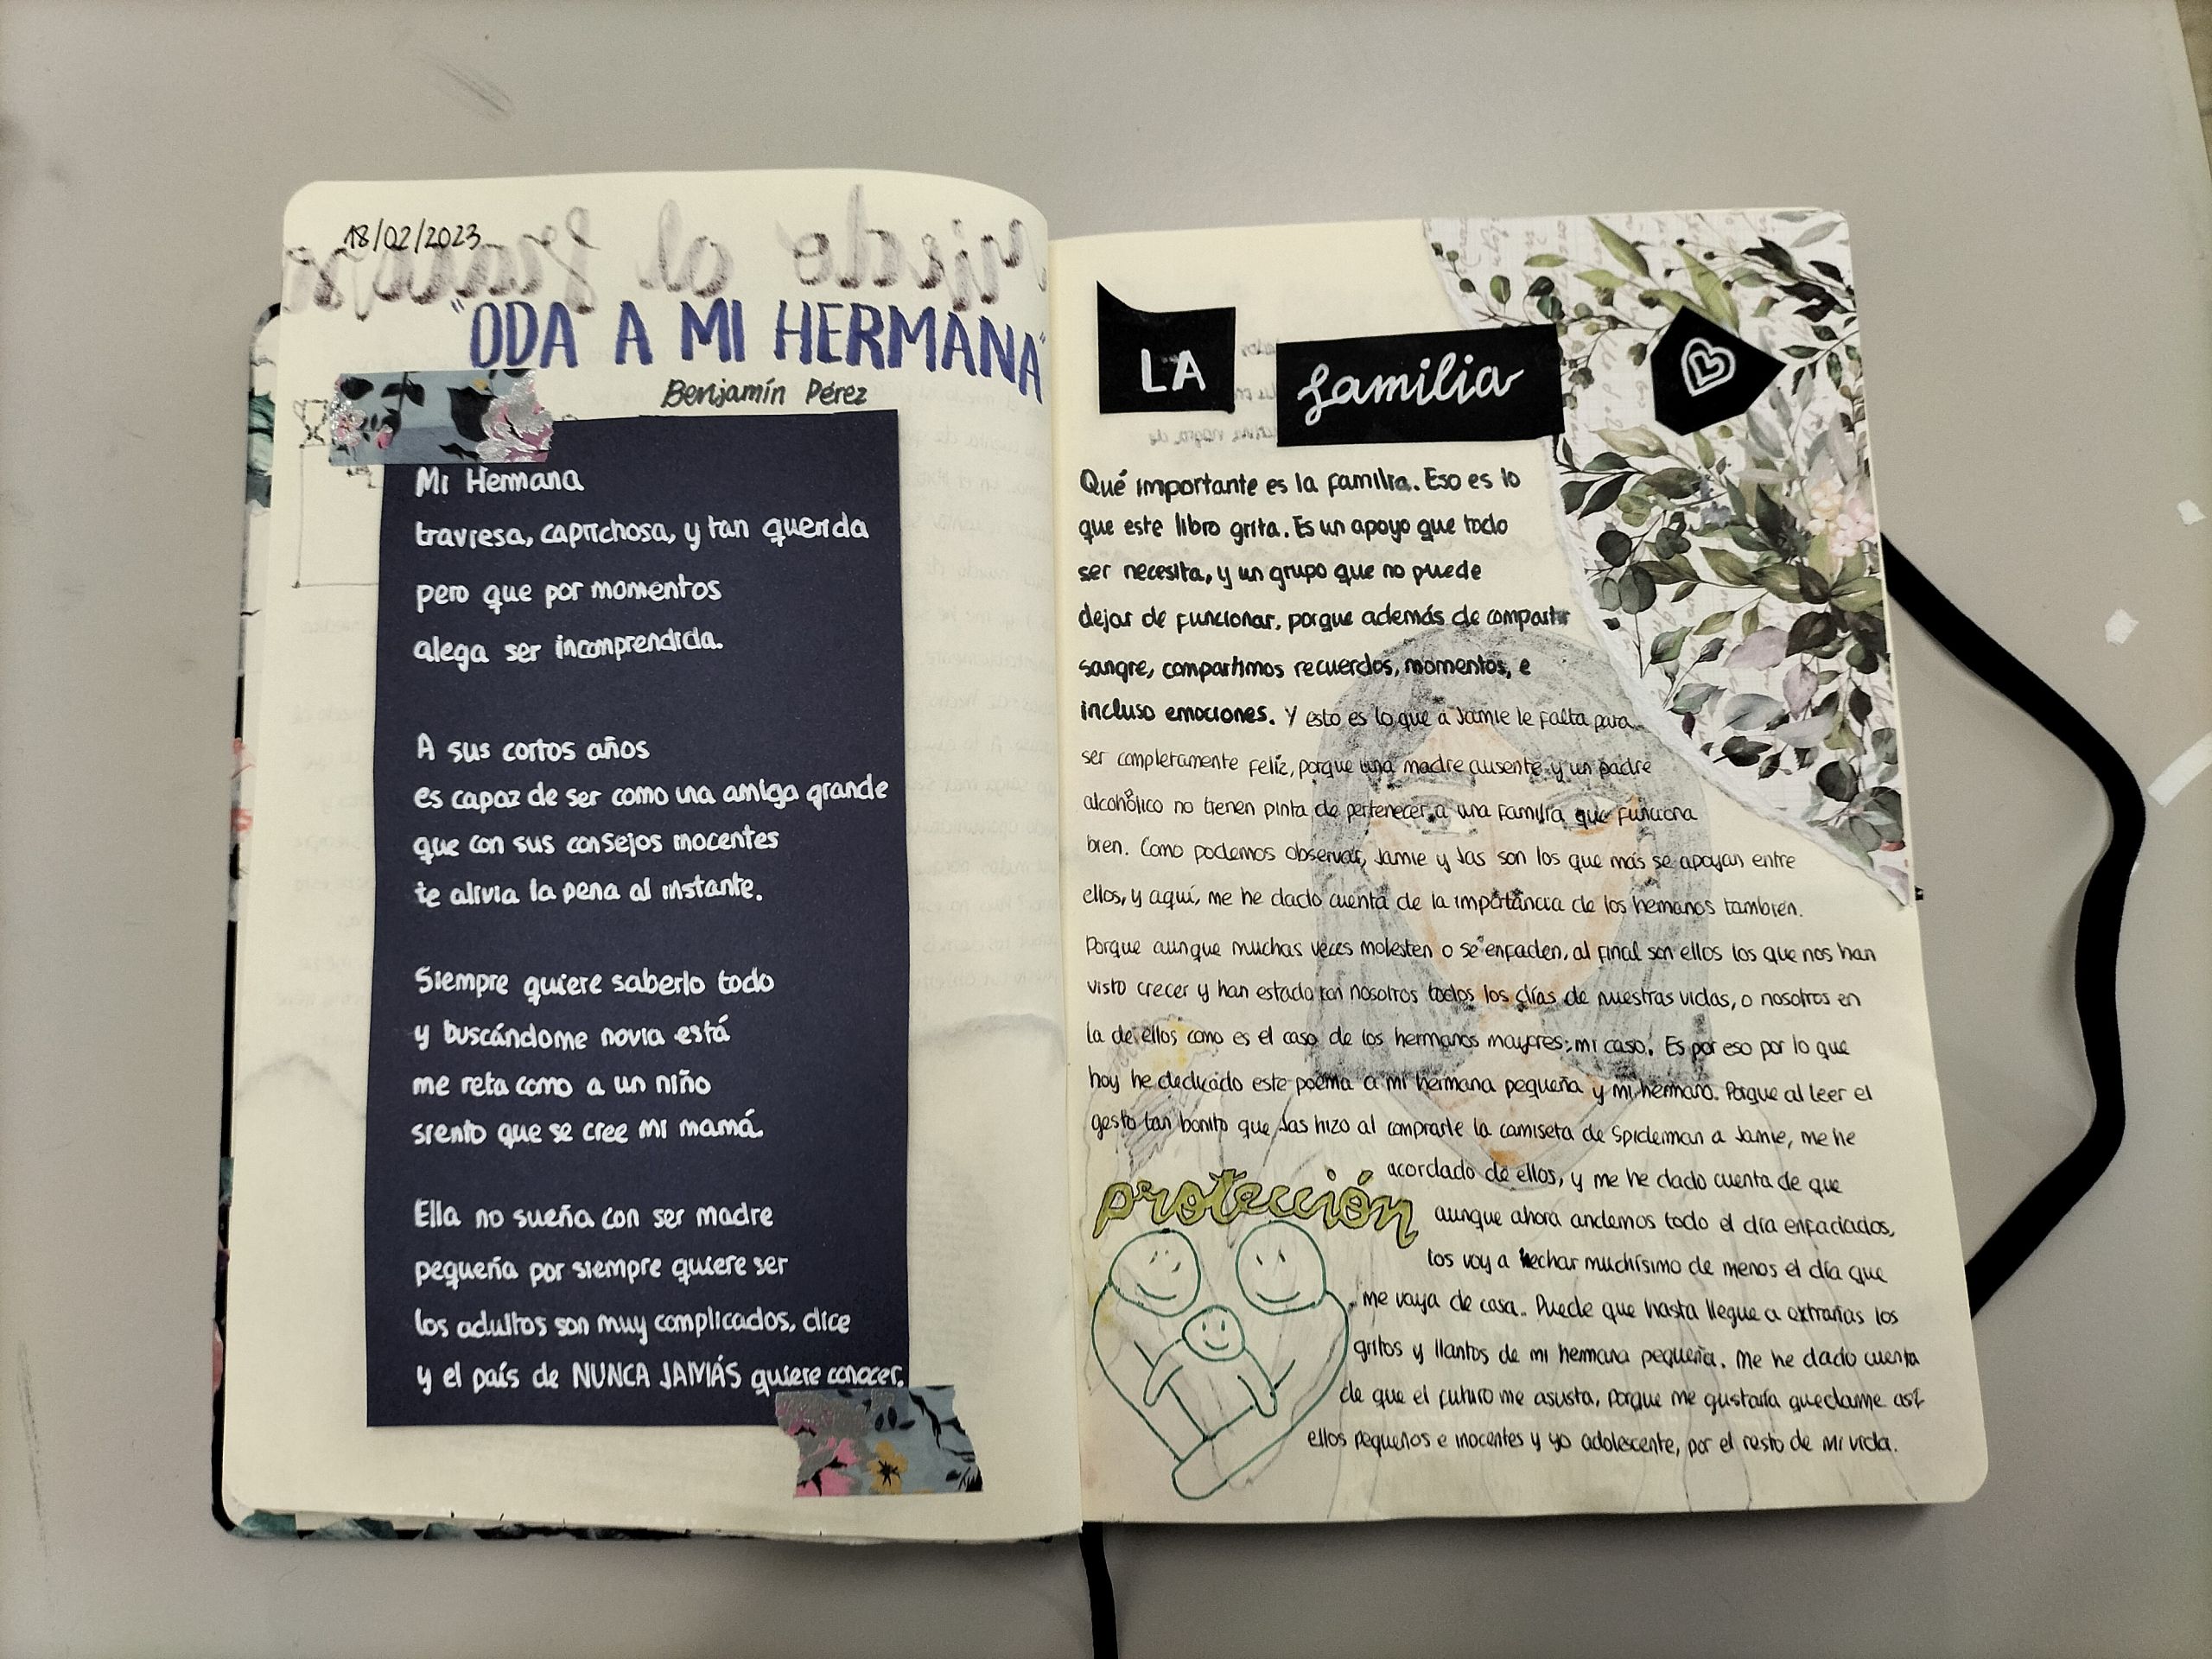 18/02/2023
"ODA A MI HERMANA"
Benjamín Pérez
Mi Hermana
traviesa, caprichosa, y tan querida
pero que por momentos
alega ser incomprendida.
A sus cortos años
es capaz de ser como una amiga grande
que con sus consejos inocentes
te alivia la pena al instante.
Siempre quiere saberlo todo
y buscándome novia está
me reta como a un niño
siento que se cree mi mamá.
Ella no sueña con ser madre
pequeña por siempre quiere ser
los adultos son muy complicados, dice
y el país de NUNCA JAMÁS quiere conocer.
LA familia
Qué importante es la familia. Eso es lo
que este libro grita. Es un apoyo que todo
ser necesita, y un grupo que no puede
dejar de funcionar, porque además de compartir
sangre, compartimos recuerdos, momentos, e
incluso emociones. Y esto es lo que a Jamie le falta para
ser completamente feliz, porque una madre ausente y un padre
alcohólico no tienen pinta de pertenecer a una familia que funciona
bien. Como podemos observar, Jamie y Jas son los que más se apoyan entre
ellos, y aquí, me he dado cuenta de la importancia de los hemanos también.
Porque aunque muchas veces molesten o se enfaden, al final son ellos los que nos han
visto crecer y han estado con nosotros todos los días de nuestras vidas, o nosotros en
la de ellos como es el caso de los hermanos mayores: mi caso. Es por eso por lo que
hoy he dedicado este poema a mi hermana pequeña y mi hermano. Porque al leer el
gesto tan bonito que Jas hizo al comprarle la camiseta de Spiderman a Jamie, me he
acordado de ellos, y me he dado cuenta de que
aunque ahora andemos todo el día enfadados,
los voy a hechar muchísimo de menos el día que
me vaya de casa.. Puede que hasta llegue a extrañas los
gritos y llantos de mi hermana pequeña. Me he dado cuenta
de que el futuro me asusta, porque me gustaría quedarme así
ellos pequeños e inocentes y yo adolescente, por el resto de mi vida.
protección